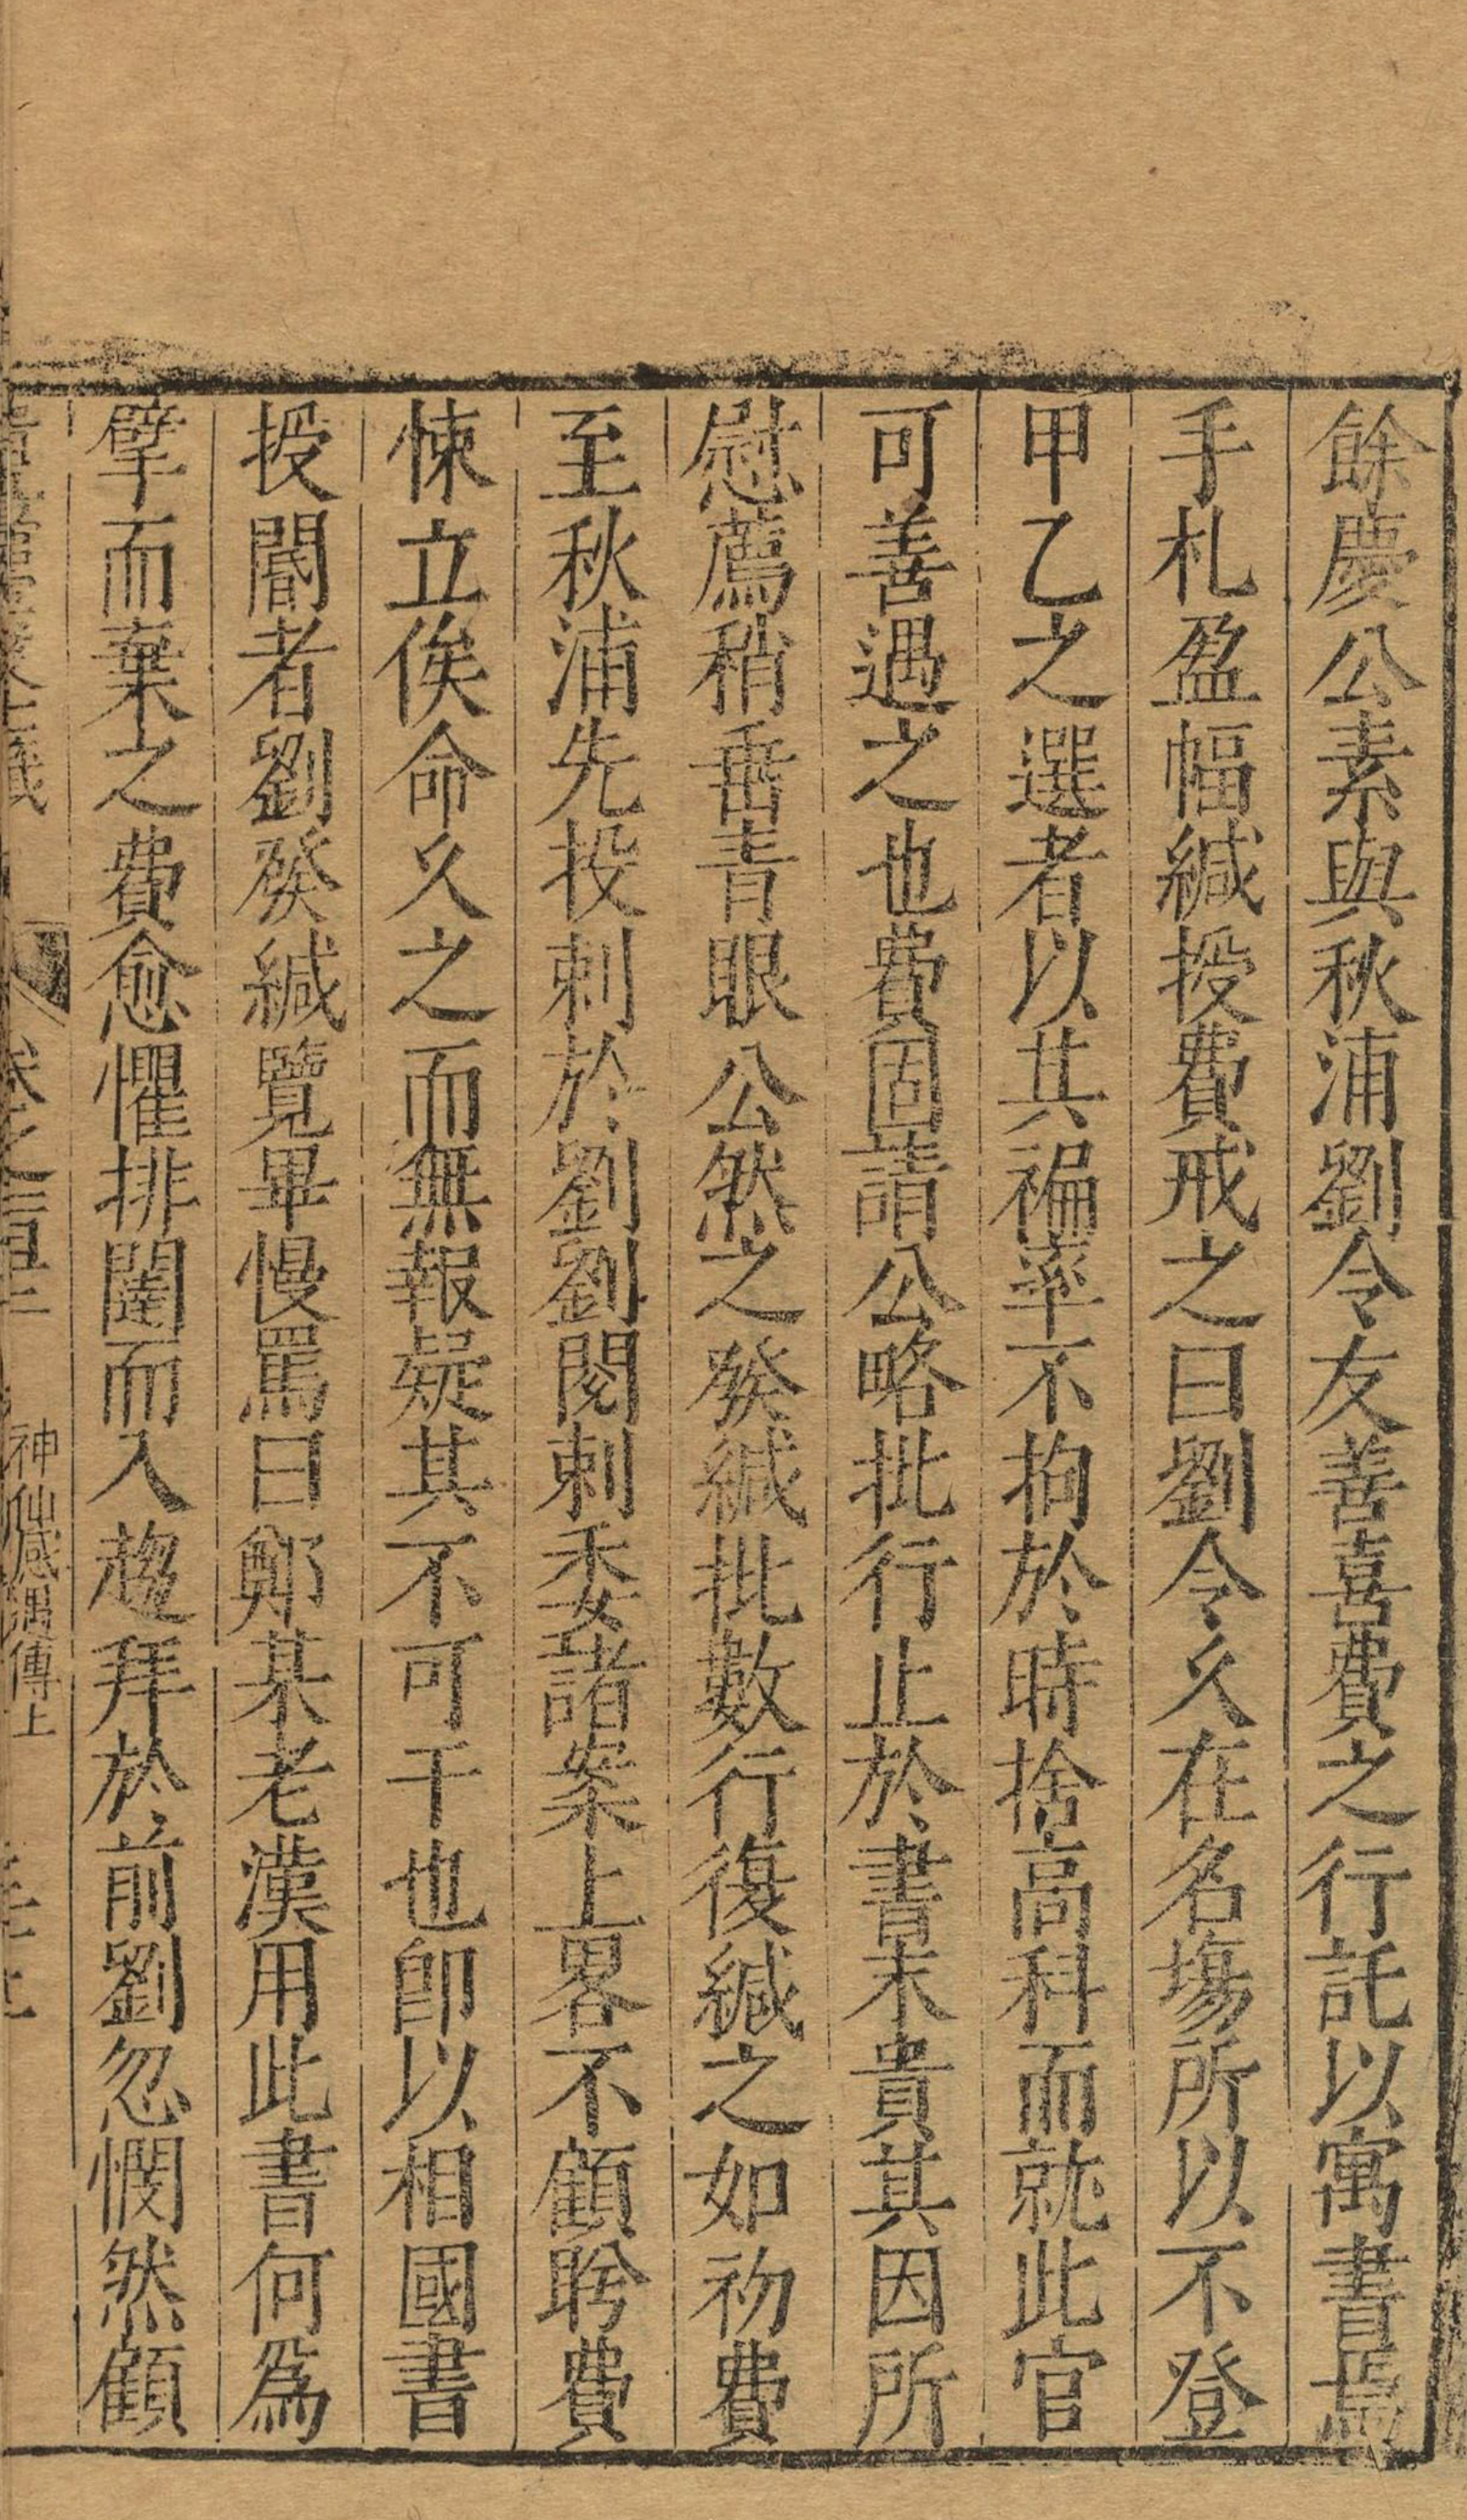 餘慶公素與秋浦劉令友善喜費之行託以寓書焉
手札盈幅緘授費戒之曰劉令久在名塲所以不登
甲乙之選者以其褊率不拘於時捨高科而就此官
可善遇之也費固請公略批行止於書末貴其因所
慰薦稍垂青眼公然之發緘批數行復緘之如初費
至秋浦先投刺於劉劉閱刺委諸案上畧不顧盻費
悚立俟命久之而無報疑其不可干也卽以相國書
授閽者劉發緘覽畢慢罵曰鄭某老漢用此書何爲
擘而棄之費愈懼排闥而入趨拜於前劉忽憫然顧
卷之一百十二 神仙感遇傳上